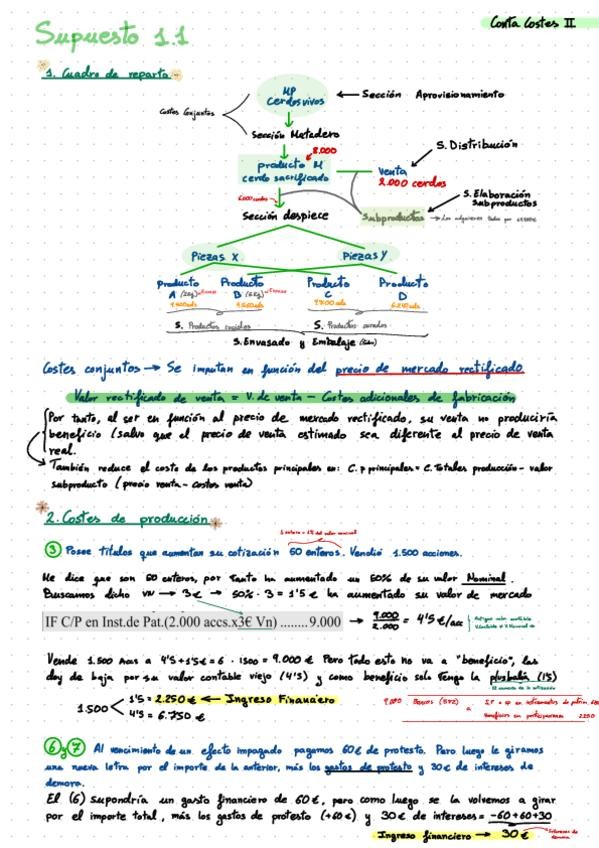 Conta Costes II
Supuesto 1.1
1. Cuadro de reparto
MP
Cerdos vivos
← Sección Aprovisionamiento
Costes Conjuntos
Sección Matadero
8.000
S. Distribución
producto M
cerdo sacrificado
Venta
2.000 cerdos
6.000 cerdos
S. Elaboración
Subproductos
Sección despiece
Subproductos
Piezas X
Piezas Y
Producto
Producto
Producto
Producto
A (2kg)
B (5kg)
C
D
S. Productos
S. Productos curados
S. Envasado y Embalaje
Costes conjuntos → Se imputan en función del precio de mercado rectificado
Valor rectificado de venta = V. de venta - Costes adicionales de fabricación
Por tanto, al ser en función al precio de mercado rectificado, su venta no produciría
beneficio (salvo que el precio de venta estimado sea diferente al precio de venta
real.
También reduce el coste de los productos principales en: C. p principales = C. Totales producción - valor
subproducto (precio venta - costes venta)
2. Costes de producción
1 entero = 1% del valor nominal
③ Posee títulos que aumentan su cotización 50 enteros. Vendió 1.500 acciones.
Me dice que son 50 enteros, por tanto ha aumentado un 50% de su valor Nominal.
Buscamos dicho VN → 3€ → 50% · 3 = 1'5 € ha aumentado su valor de mercado
IF C/P en Inst.de Pat.(2.000 accs.x3€ Vn) ........9.000 → 9.000/2.000 = 4'5 €/acc
Vende 1.500 Accs a 4'5+1'5€ = 6 · 1500 = 9.000 € Pero todo esto no va a "beneficio", las
doy de baja por su valor contable viejo (4'5) y como beneficio solo tengo la plusvalía (1'5)
1.500
1'5 = 2.250 € ← Ingreso Financiero
4'5 = 6.750 €
9.000 Bancos (572)
a
Beneficios en participaciones 2250
⑥ y ⑦ Al vencimiento de un efecto impagado pagamos 60€ de protesto. Pero luego le giramos
una nueva letra por el importe de la anterior, más los gastos de protesto y 30€ de intereses de
demora.
El (6) supondría un gasto financiero de 60€, pero como luego se la volvemos a girar
por el importe total, más los gastos de protesto (+60€) y 30€ de intereses = -60+60+30
Ingreso financiero → 30€
Intereses de
demora